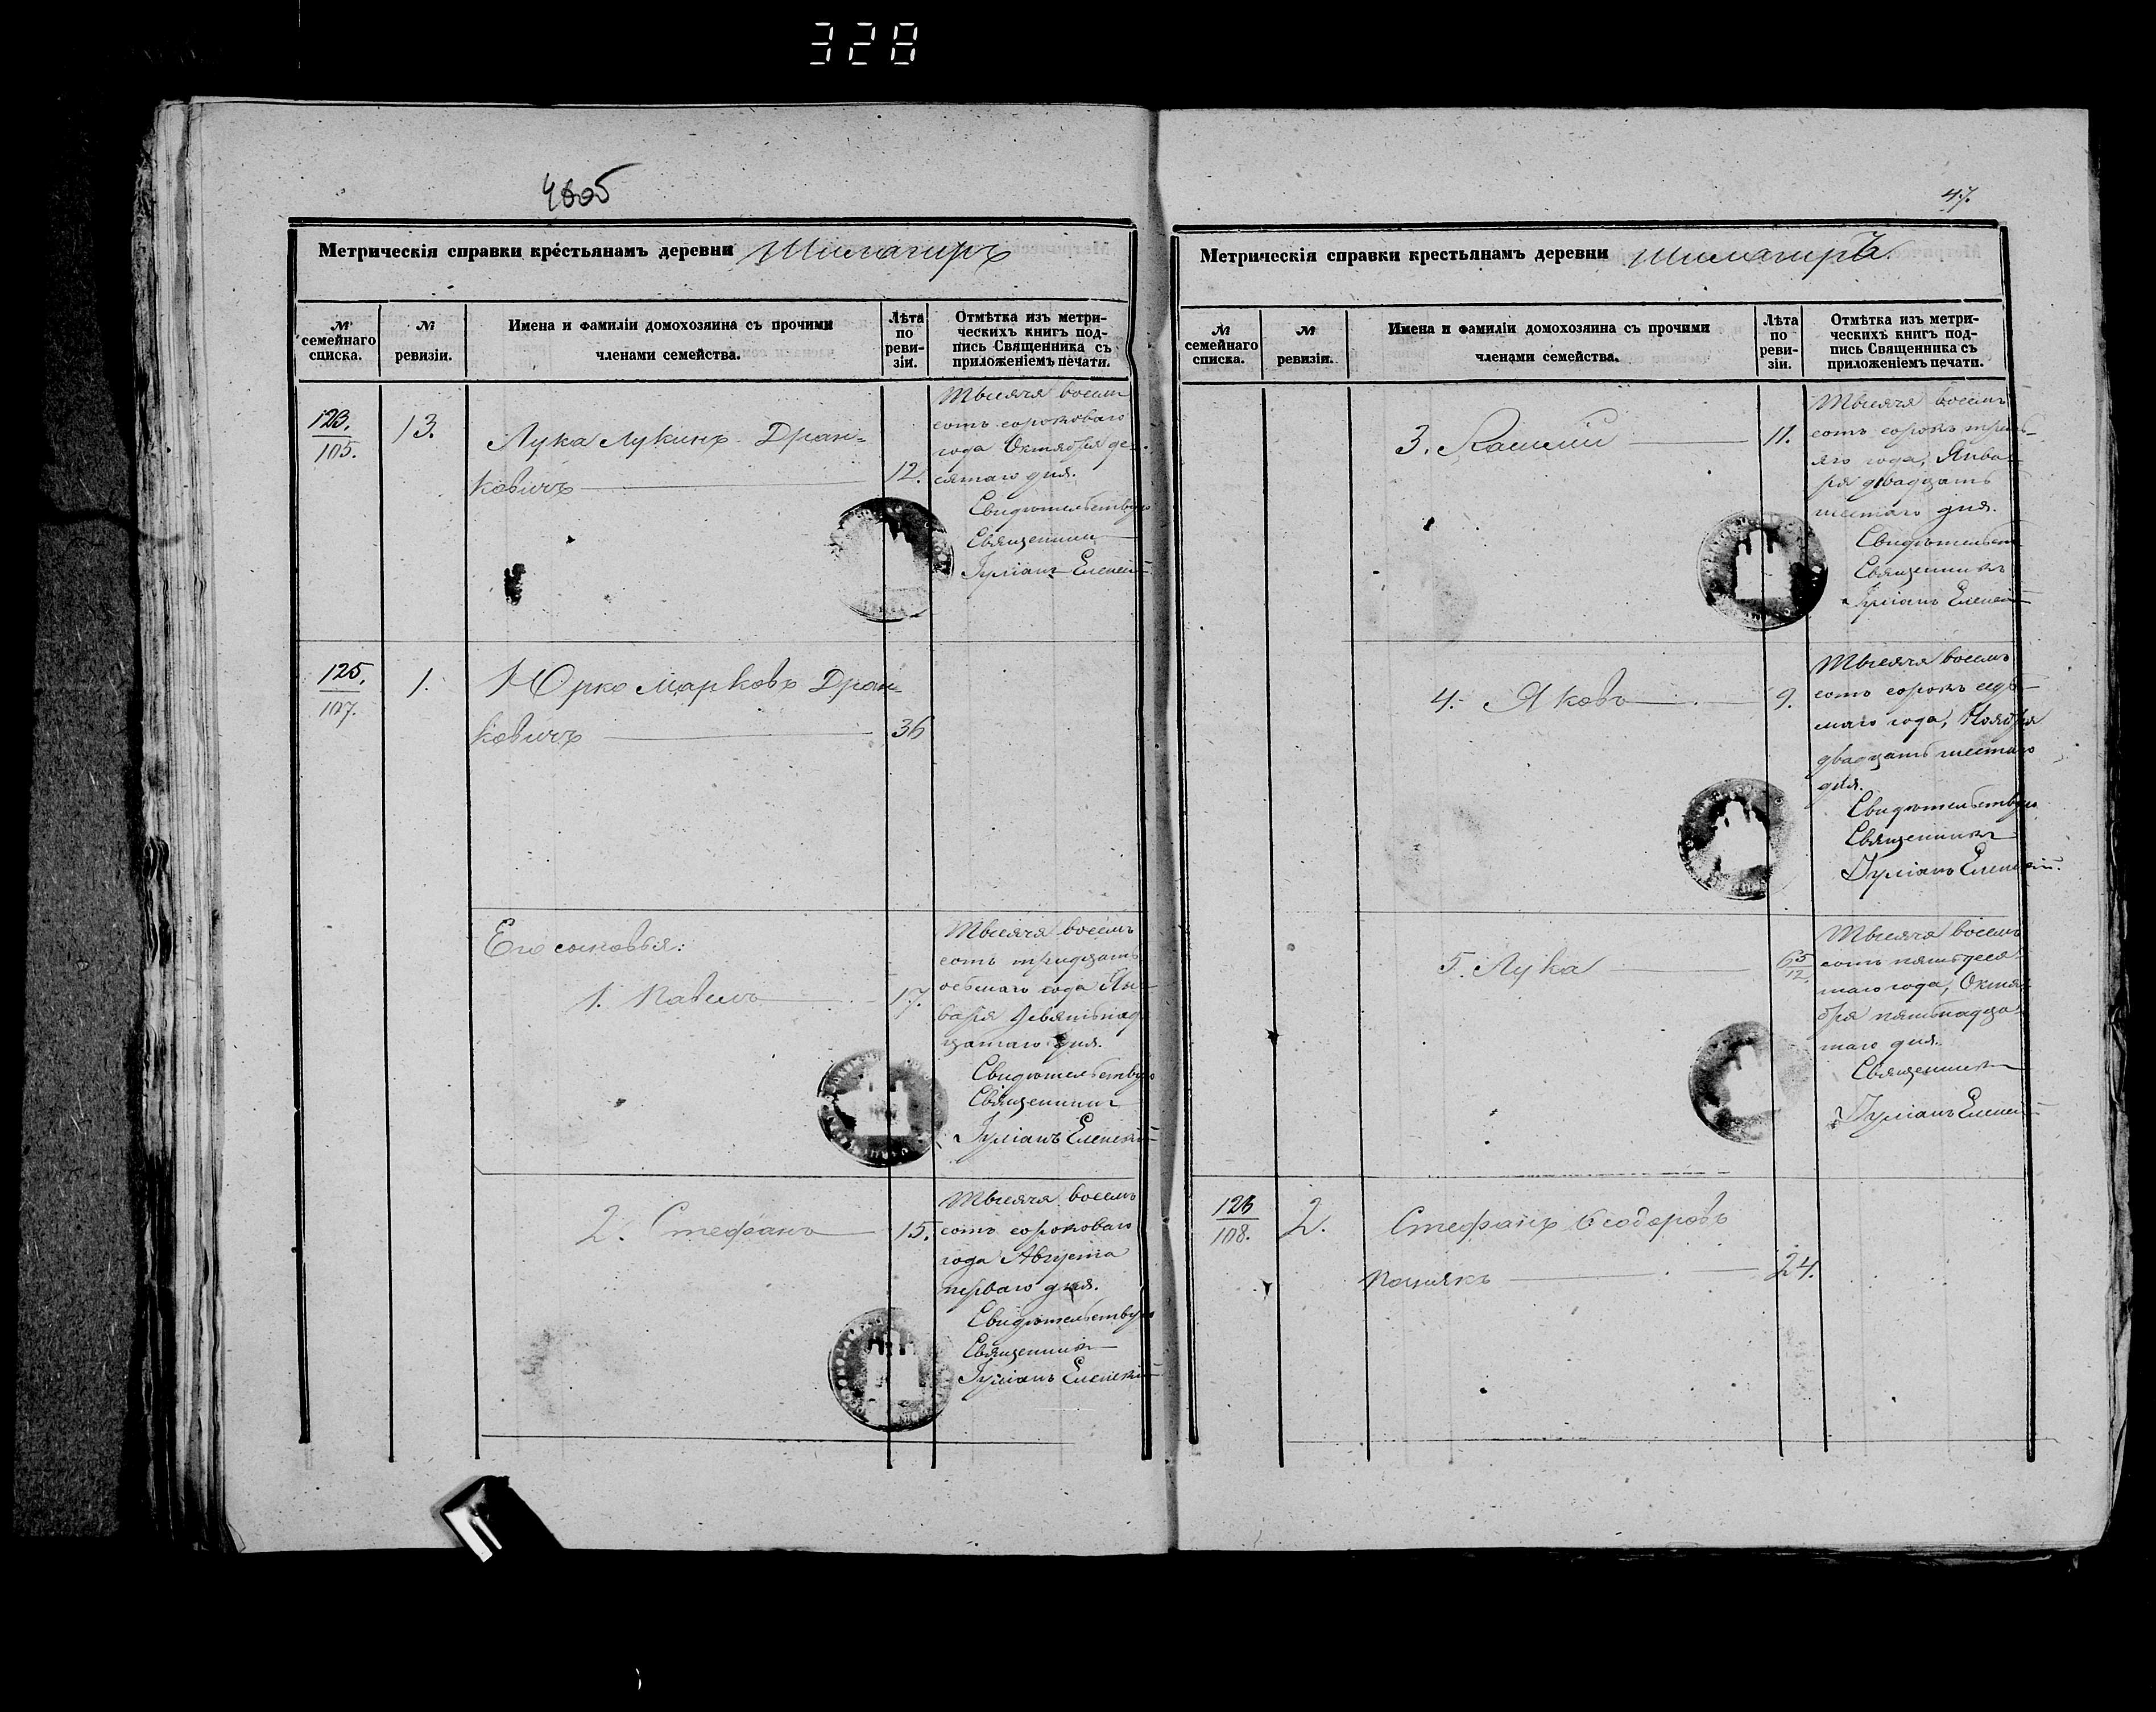 328
Метрическія справки крестьянамъ деревни
№ семейнаго списка.
№ ревизіи.
Имена и фамиліи домохозяина съ прочими членами семейства.
Лѣта по ревизіи.
Отмѣтка изъ метри-
ческихъ книгъ под-
пись Священника съ
приложеніемъ печати.
123.
105.
13.
Лука Лукинъ Дран=
ковичъ
12.
Тысяча восемь
сотъ сороковаго
года Октября де-
сятаго дня.
Свидѣтельствую
Священникъ
Іуліанъ
125.
107.
1.
Юрко Марковъ Дран=
ковичъ
36
Его сыновья:
1. Павелъ
17.
Тысяча восемь
сотъ тридцать
осьмаго года Ян-
варя девятьнад
цатаго дня.
Свидѣтельствую
Священникъ
Іуліанъ
2. Стефанъ
15.
Тысяча восемь
сотъ сороковаго
года Августа
перваго дня.
Свидѣтельствую
Священникъ
Іуліанъ
47.
Метрическія справки крестьянамъ деревни
№ семейнаго списка.
№ ревизіи.
Имена и фамиліи домохозяина съ прочими членами семейства.
Лѣта по ревизіи.
Отмѣтка изъ метри-
ческихъ книгъ под-
пись Священника съ
приложеніемъ печати.
3.
11.
Тысяча восемь
сотъ сорокъ треть-
яго года, Янва-
ря двадцать
шестаго дня.
Священникъ
Іуліанъ
4. Яковъ
9.
Тысяча восемь
сотъ сорокъ седь-
маго года, Ноября
двадцать шестаго
дня.
Свидѣтельствую
Священникъ
Іуліанъ
5. Лука
Тысяча восемь
сотъ пятьдеся-
таго года, Октя-
бря пятьнадца-
таго дня.
Священникъ
Іуліанъ
126
108.
2.
Стефанъ Ѳеодоровъ
24.